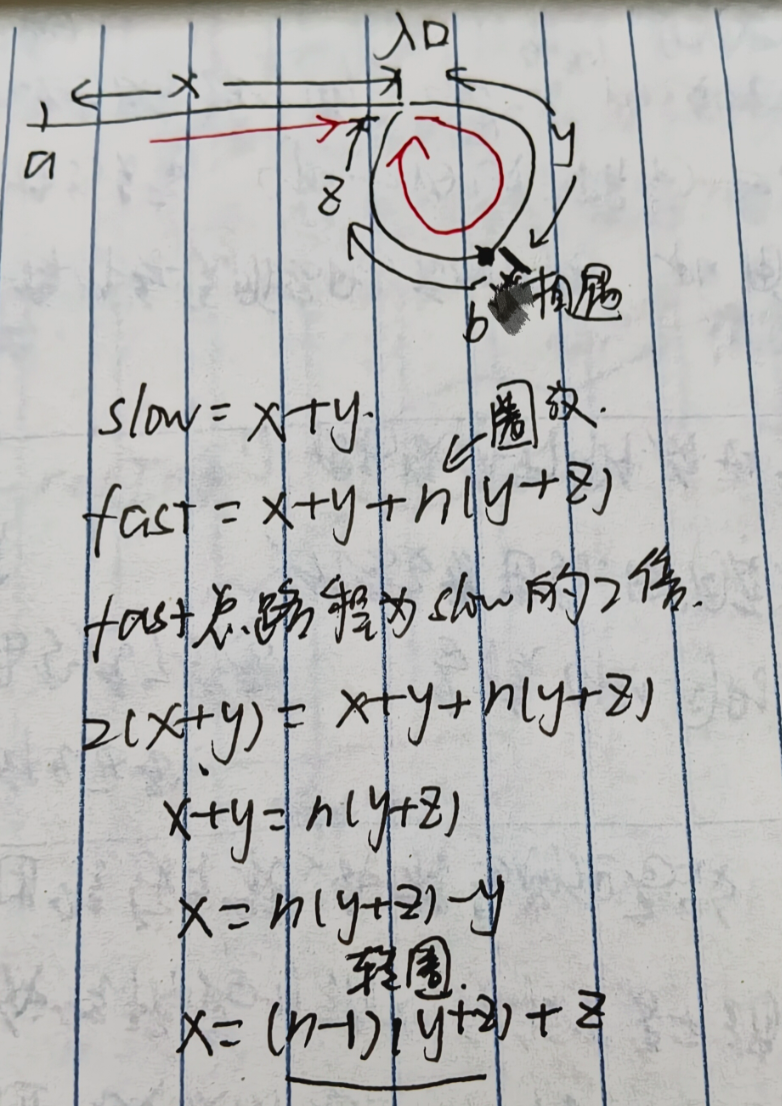 入口
x
a
z
y
b 相遇
slow = x+y.
圈数.
fast = x+y+n(y+z)
fast总路程为slow的2倍.
2(x+y) = x+y+n(y+z)
x+y = n(y+z)
x = n(y+z)-y
转圈.
x = (n-1)(y+z)+z